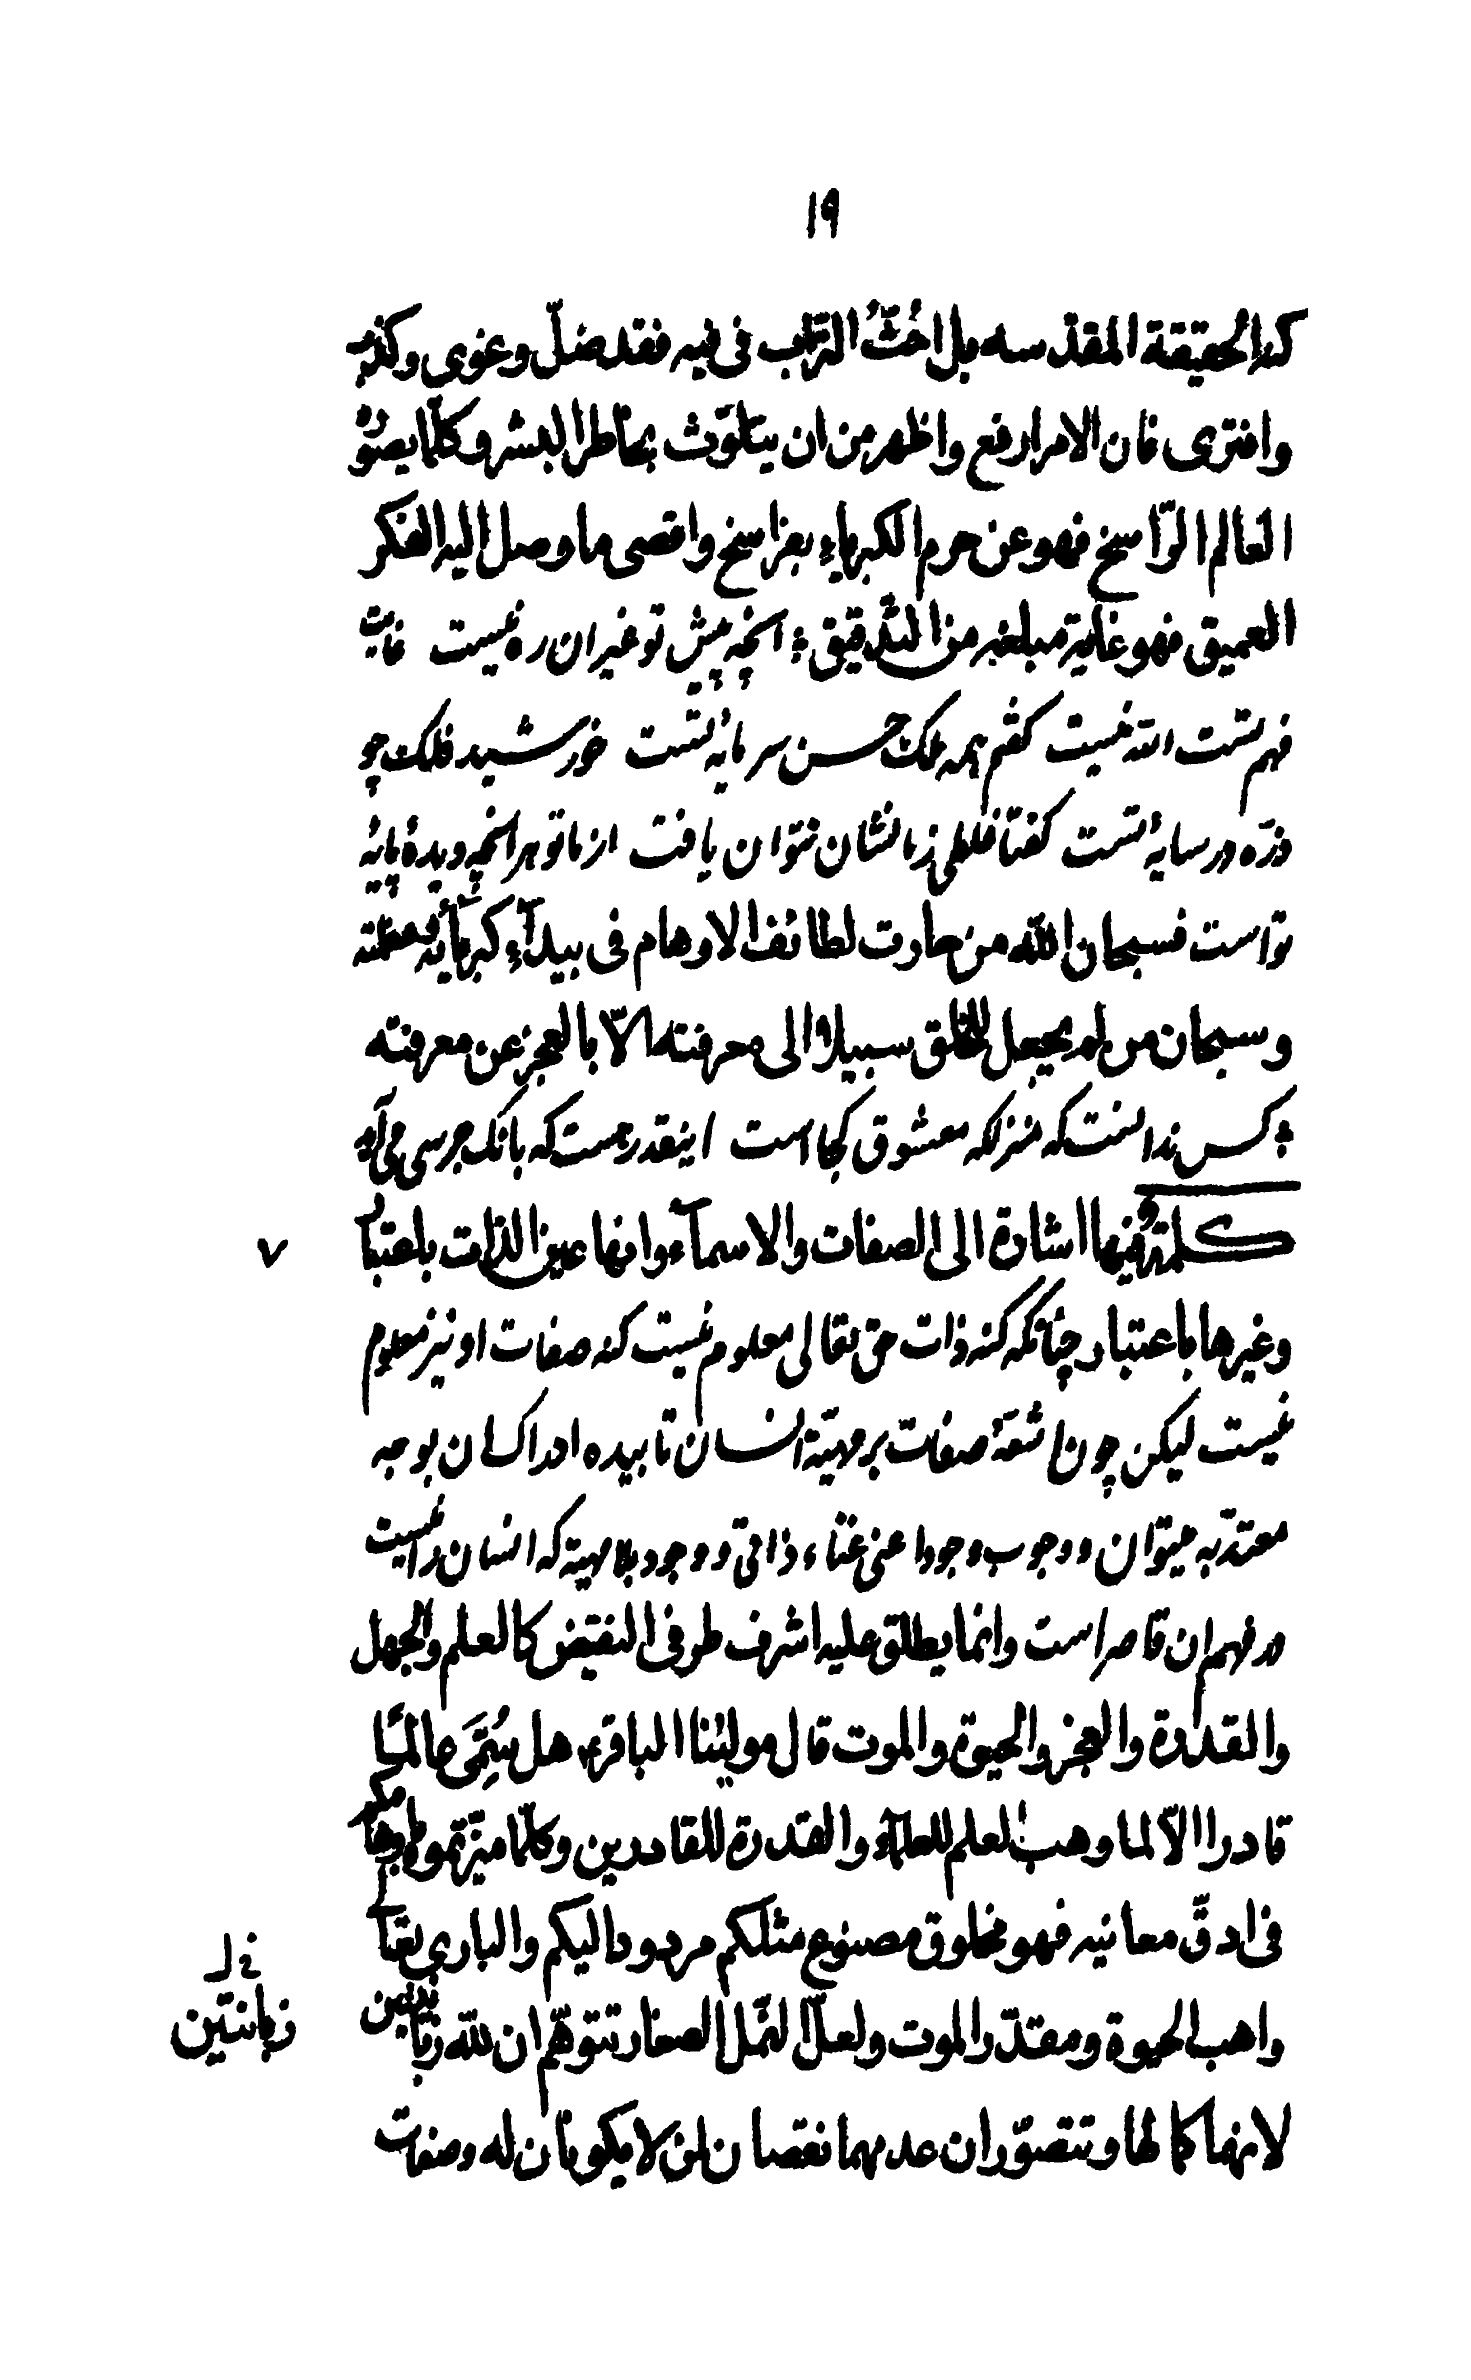 ١٩
كنه الحقيقة المقدسه بل احُثُّ التراب فى فيه فقد ضلّ وغوى وكذب
وافترى فان الامر ارفع واظهر من ان يتلوّث بخاطر البشر وكلّما يصوّره
العالم الرّاسخ فهو عن حرم الكبرياء بفراسخ واقصى ما وصل اليه الفكر
العميق فهو غاية مبلغه من التّدقيق ؛ انچه پيش تو غير ان ره نيست غايت
فهم تست الله نيست گفتم همه ملك حسن سرمايهٔ تست خورشيد فلك چو
ذرّه در سايهٔ تست گفتا غلطى ز ما نشان نتوان يافت از ما تو هر آنچه ديدهٔ پايهٔ
تو است فسبحان الله من حارت لطائف الاوهام فى بيدآء كبريائه وعظمته
وسبحان من لم يجعل للخلق سبيلا الى معرفته الّا بالعجز عن معرفته
؛ كس ندانست كه منزلگه معشوق كجا است اينقدر هست كه بانك جرسى مى آيد
كلمة فيها اشارة الى الصفات والاسمآء وانها عين الذات باعتبار
٧
وغيرها باعتبار چنانكه كنه ذات حق تعالى معلوم نيست كنه صفات او نيز معلوم
نيست ليكن چون اشعّهٔ صفات بر مهيّة انسان تابيده ادراك ان بوجه
معتدّ به ميتوان ووجوب وجود اعنى غناء ذاتى و وجود بلا مهية كه انسان را نيست
در فهم ان قاصر است وانما يطلق عليه اشرف طرفى النقيض كالعلم والجهل
والقدرة والعجز والحيوة والموت قال مولينا الباقرء هل سُمِّىَ عالمًا
قادرا الّا لما وهب العلم للعلمآء والقدرة للقادرين وكلّما ميّزتموه باوهامكم
فى ادقّ معانيه فهو مخلوق مصنوع مثلكم مردود اليكم والبارى تعا
واهب الحيوة ومقدّر الموت ولعلّ النّمل الصغار تتوهّم ان لله زبانيين
خ ل
زبانتين
لانهما كمالها وتتصوّر ان عدمهما نقصان لمن لا يكونان له وصفات